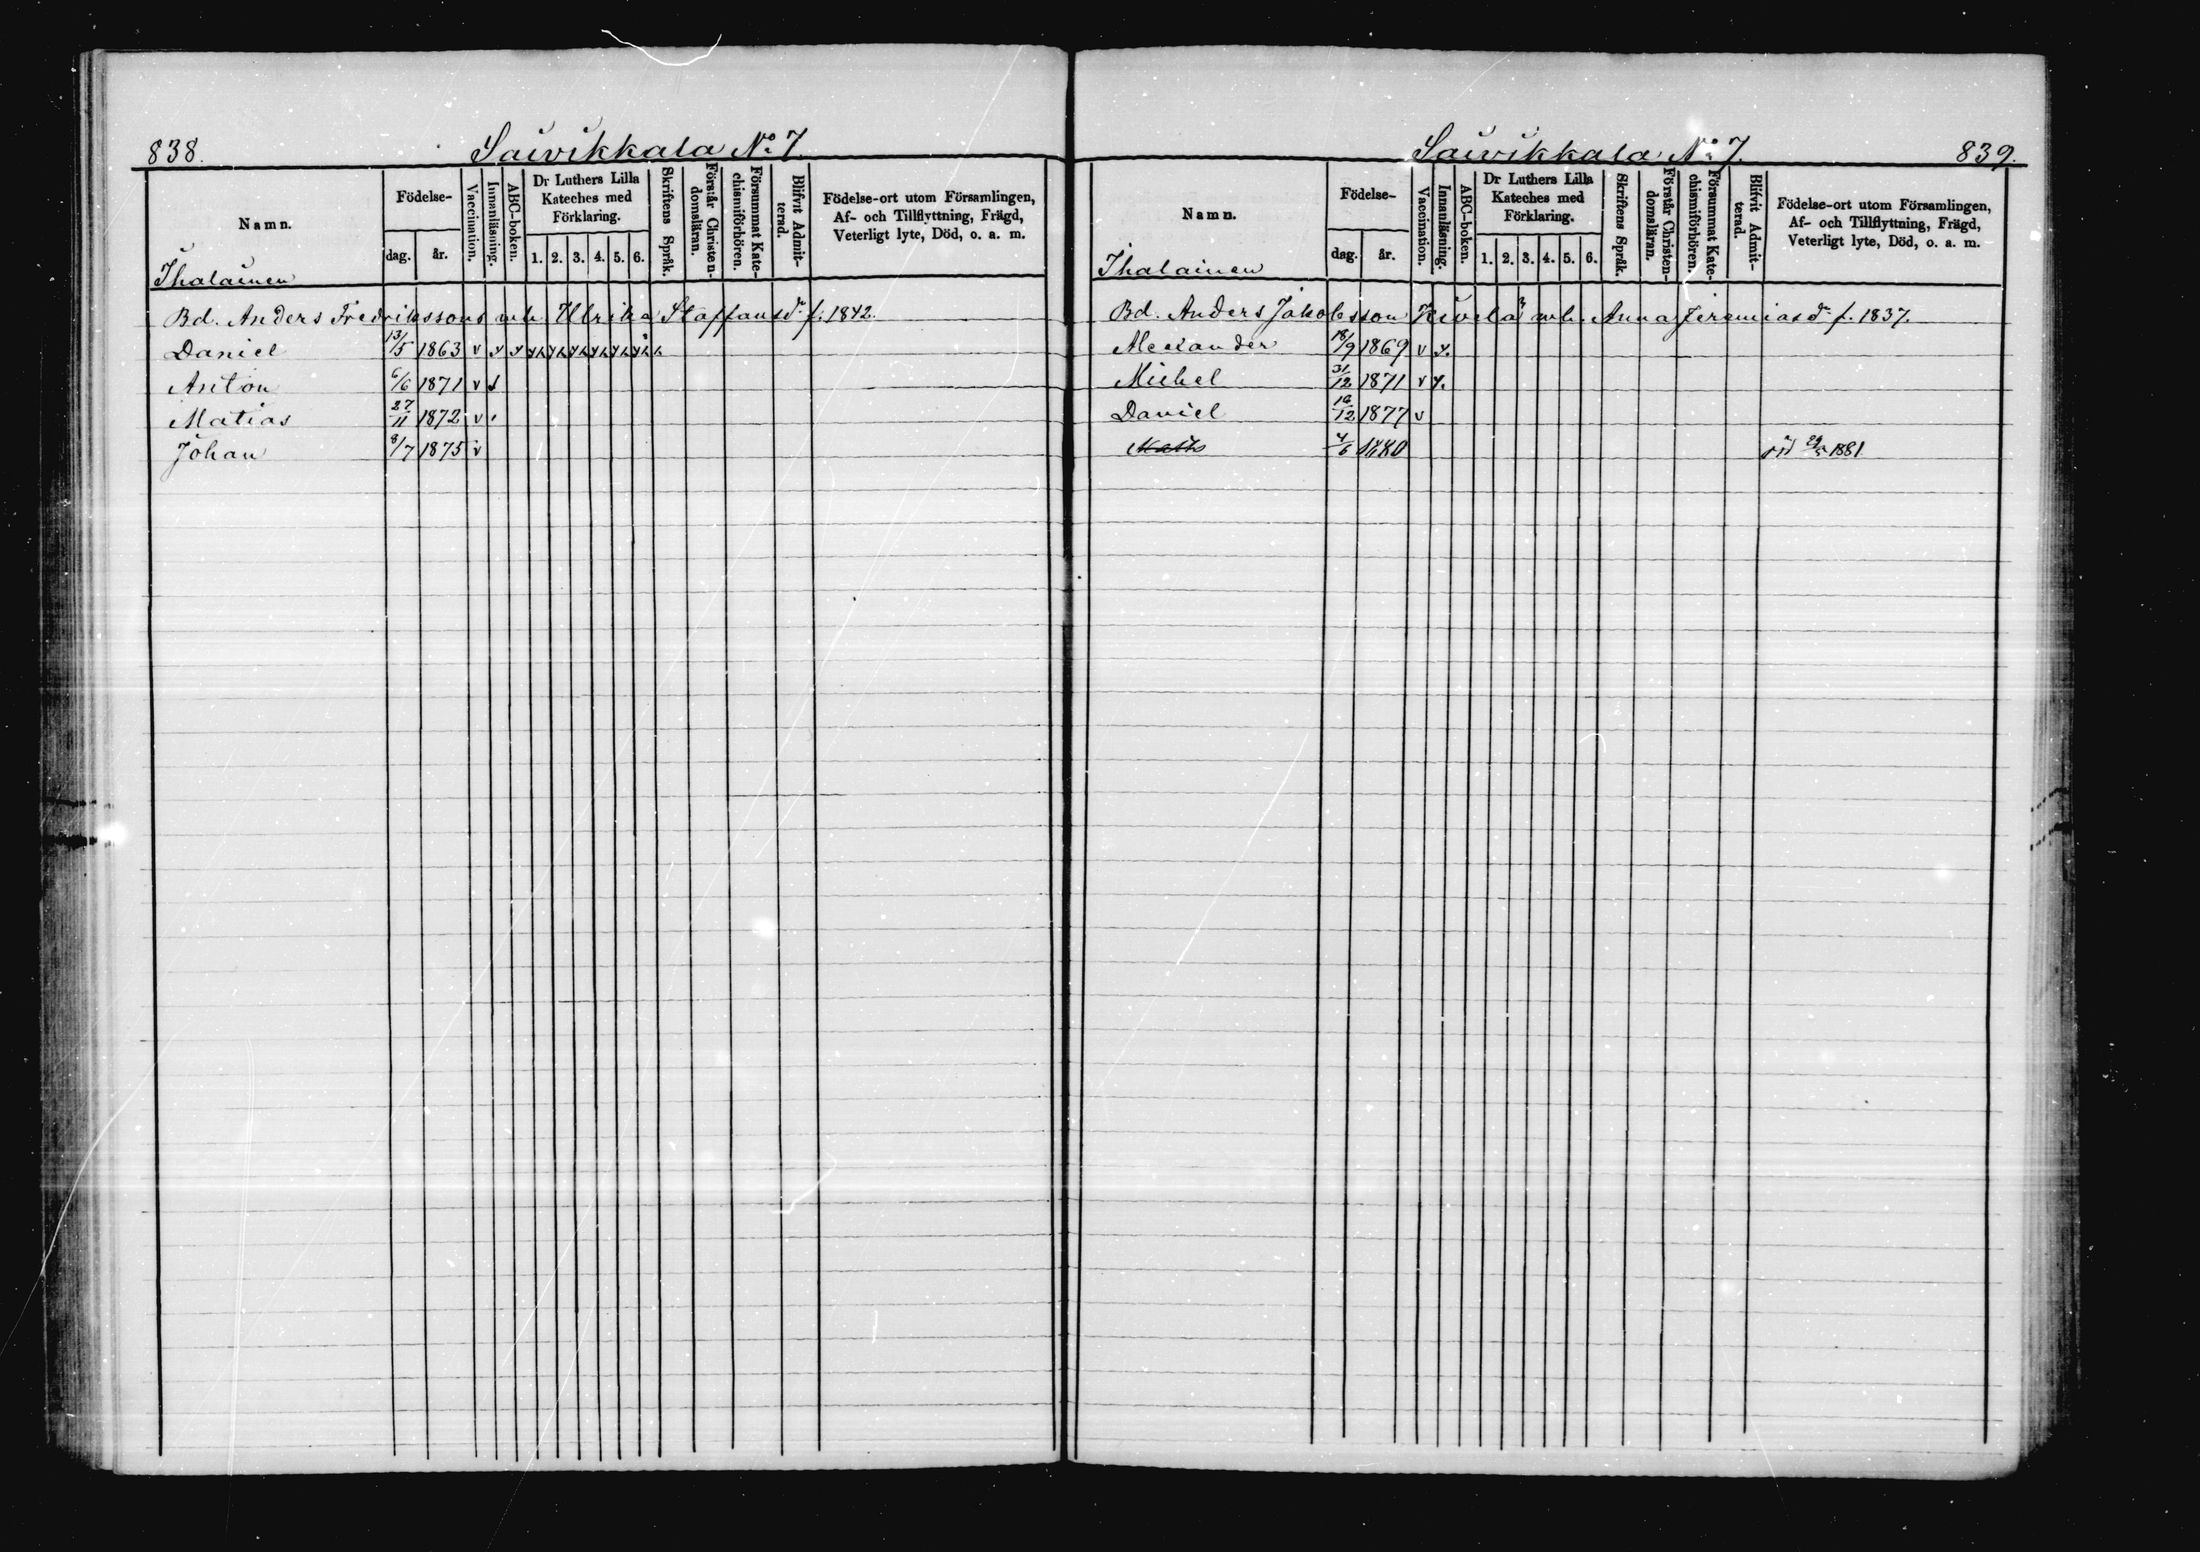 838.
Saivikkala No 7.
Namn.
Födelse-
dag.
år.
Vaccination.
Innanläsning.
ABC-boken.
Dr Luthers Lilla
Kateches med
Förklaring.
1. 2. 3. 4. 5. 6.
Skriftens Språk.
Förstår Christen-
domsläran.
Försummat Kate-
chismiförhören.
Blifvit Admit-
terad.
Födelse-ort utom Församlingen,
Af- och Tillflyttning, Frägd,
Veterligt lyte, Död, o. a. m.
Ihalainen
Bd. Anders Fredrikssons m.h. Ulrika Staffansdr f. 1842.
Daniel 13/5 1863 v
Anton 6/6 1871 v
Matias 27/11 1872 v
Johan 8/7 1875 v
Saivikkala No 7.
839.
Namn.
Födelse-
dag.
år.
Vaccination.
Innanläsning.
ABC-boken.
Dr Luthers Lilla
Kateches med
Förklaring.
1. 2. 3. 4. 5. 6.
Skriftens Språk.
Förstår Christen-
domsläran.
Försummat Kate-
chismiförhören.
Blifvit Admit-
terad.
Födelse-ort utom Församlingen,
Af- och Tillflyttning, Frägd,
Veterligt lyte, Död, o. a. m.
Ihalainen
Bd. Anders Jakobsson Kivelä m.h. Anna Jeremiasdr f. 1837.
Alexander 18/9 1869 v
Michel 31/12 1871 v
Daniel 12 1877 v
6 1880 död 1881